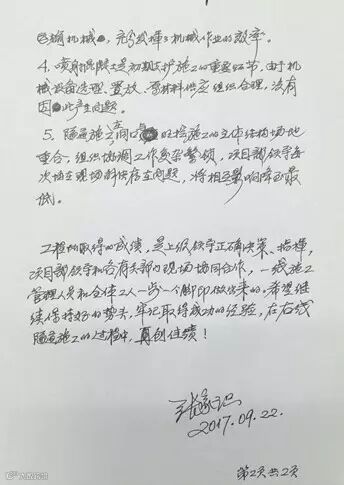 机械，充分发挥了机械作业的效率。
4、喷射混凝土是初期支护施工的重要环节，由于机
械设备选型、置放、原材料供应组织合理，没有
因此产生问题。
5、隧道施工洞口与明挖施工的主体结构场地
重合，组织协调工作复杂繁锁，项目部领导每
次均在现场解决存在问题，将相互影响降到最
低。
工程取得的成绩，是上级领导正确决策、指挥，
项目部领导和各有关部门现场协同合作，一线施工
管理人员和全体工人一步一个脚印做出来的。希望继
续保持好的势头，牢记取得成功的经验，在右线
隧道施工的过程中，再创佳绩！
2017.09.22.
第2页共2页